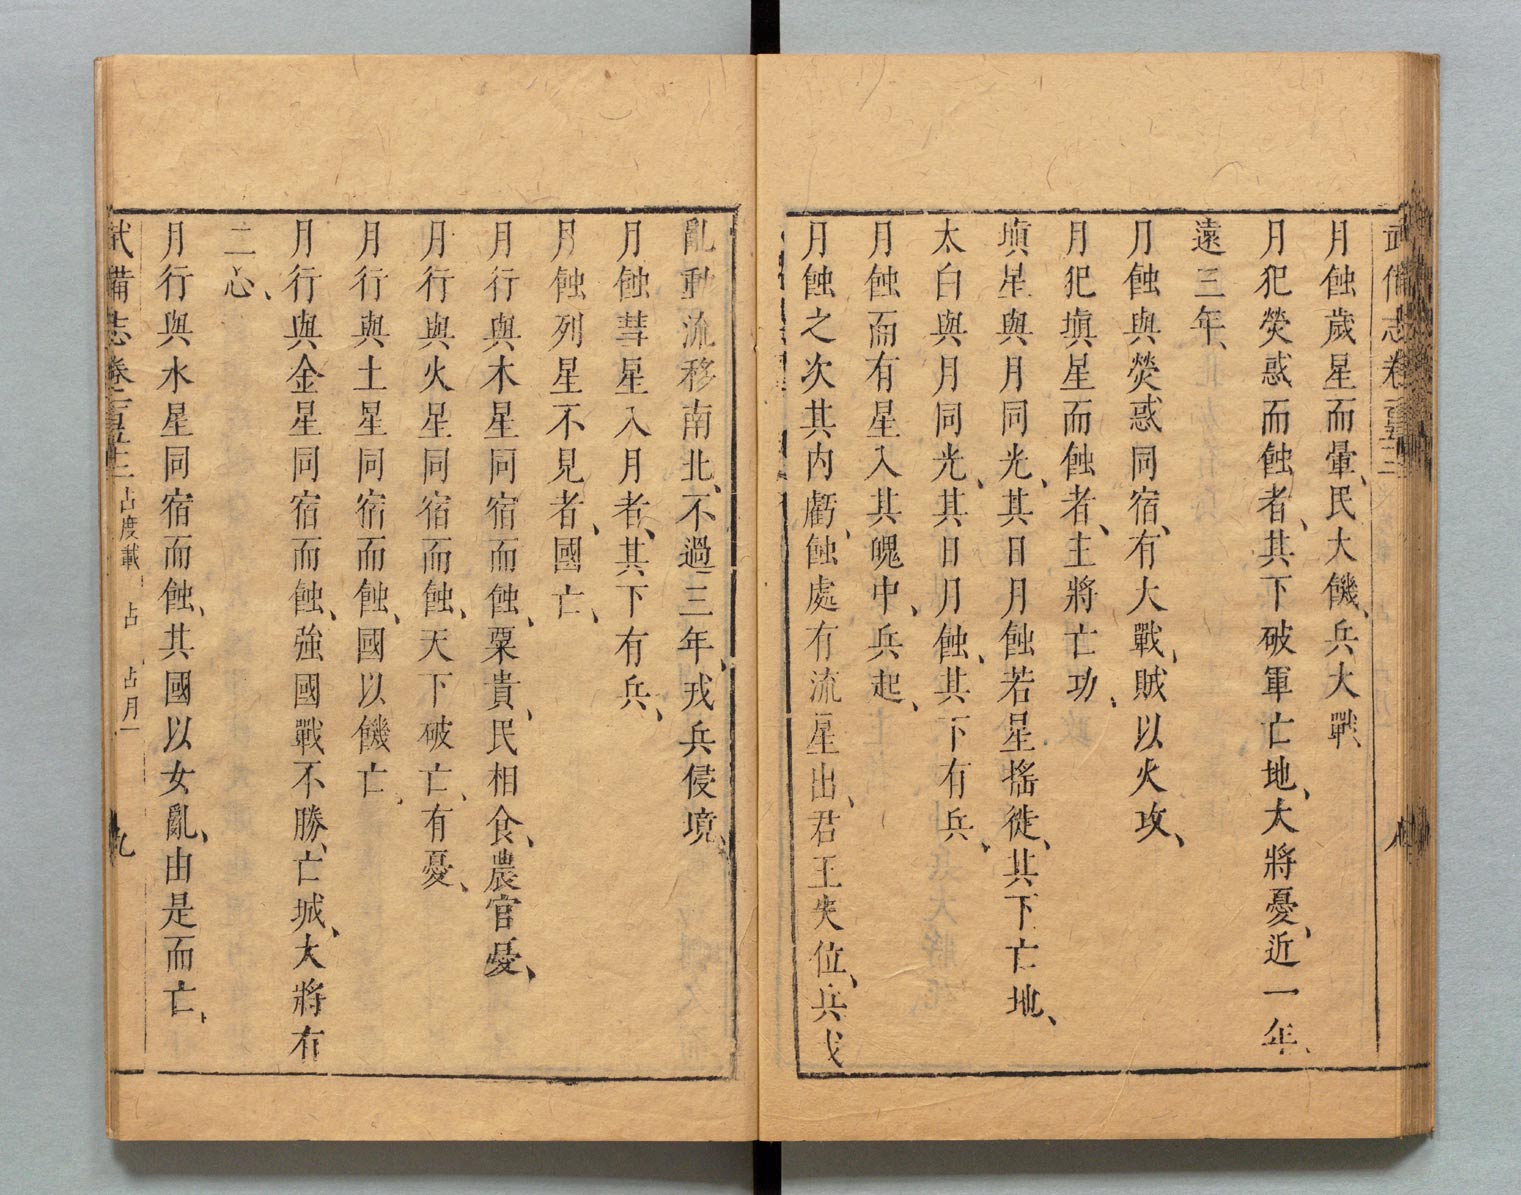 武備志卷一百五十三 八
月蝕歲星而暈、民大饑、兵大戰、
月犯熒惑而蝕者、其下破軍亡地、大將憂、近一年、
遠三年、
月蝕與熒惑同宿、有大戰、賊以火攻、
月犯塡星而蝕者、主將亡功、
塡星與月同光、其日月蝕若星搖徙、其下亡地、
太白與月同光、其日月蝕、其下有兵、
月蝕而有星入其魄中、兵起、
月蝕之次其内虧、蝕處有流星出、君王失位、兵戎
亂動流移南北、不過三年、戎兵侵境、
月蝕彗星入月者、其下有兵、
月蝕列星不見者、國亡、
月行與木星同宿而蝕、粟貴、民相食、農官憂、
月行與火星同宿而蝕、天下破亡、有憂、
月行與土星同宿而蝕、國以饑亡、
月行與金星同宿而蝕、強國戰不勝、亡城、大將有
二心、
月行與水星同宿而蝕、其國以女亂、由是而亡、
武備志卷一百五十三 占度載 占 占月一 九